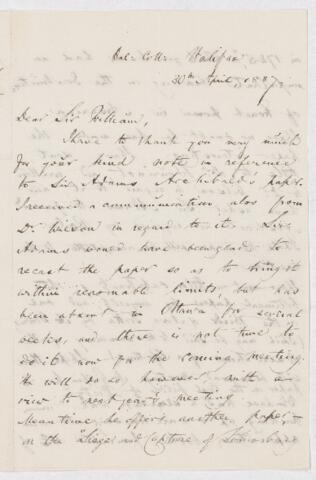 Dal: Coll: Halifax
30th April 1887
Dear Sir William,
I have to thank you very much
for your kind note in reference
to Sir Adams Archibald's paper.
I received a communication also from
Dr in regard to it. Sir
Adams would have been glad to
recast the paper so as to bring it
within reasonable limits, but has
been absent in Ottawa for several
weeks, and there is not time to
do it now for the coming meeting.
He will do so however with a
view to next year's meeting
Meantime he offers another paper,—
on the Siege and Capture of Louisburg